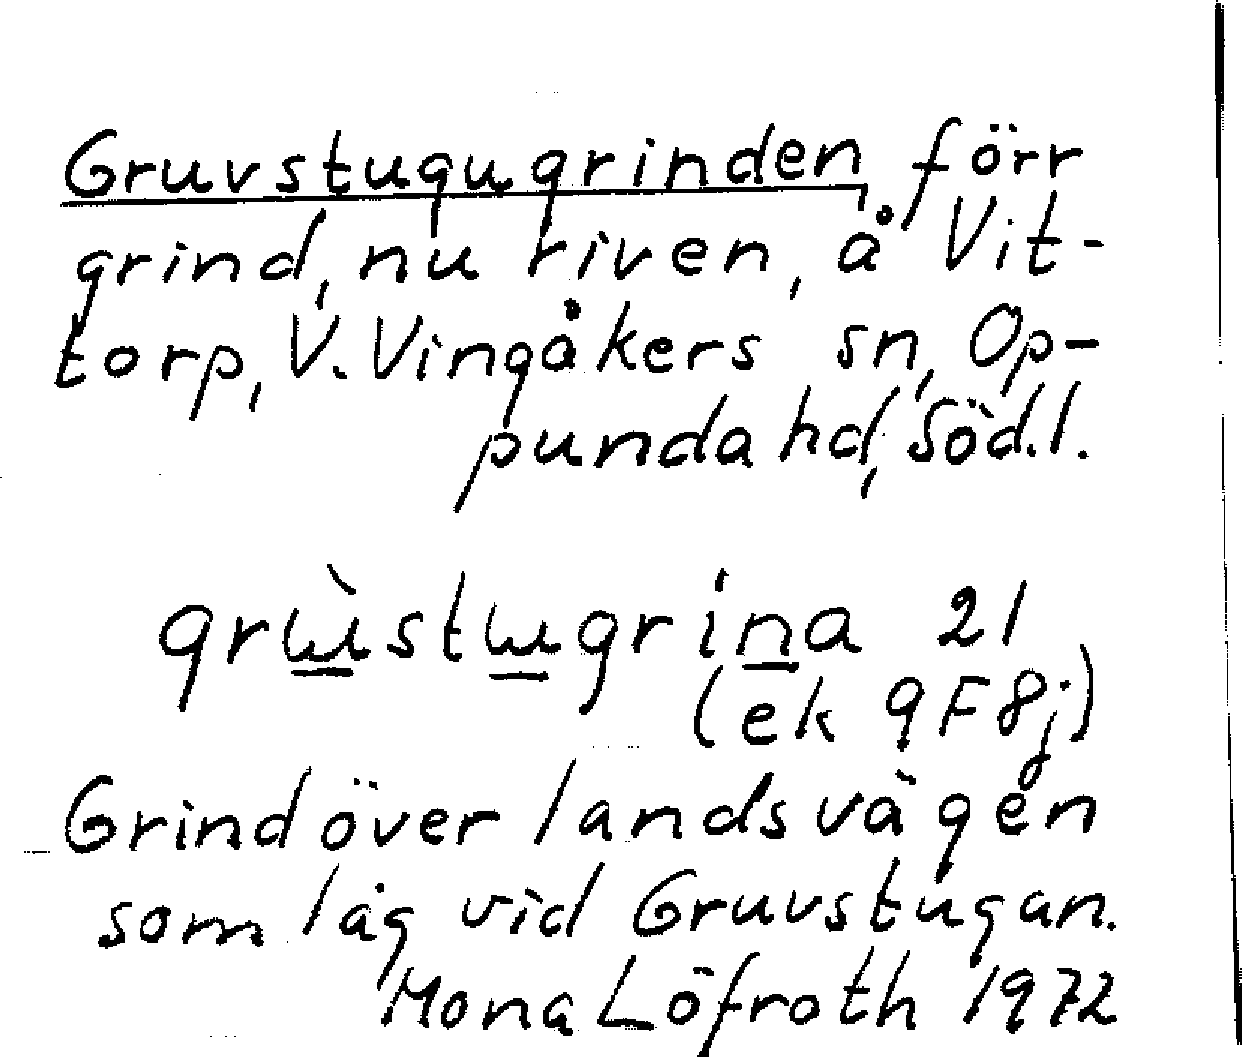 Gruvstugugrinden, förr
grind, nu riven, å Vit-
torp, V. Vingåkers sn, Op-
punda hd, Söd.l.
grɯ̀stɯgrina 21
(ek 9F8j)
Grind över landsvägen
som låg vid Gruvstugan.
Mona Löfroth 1972